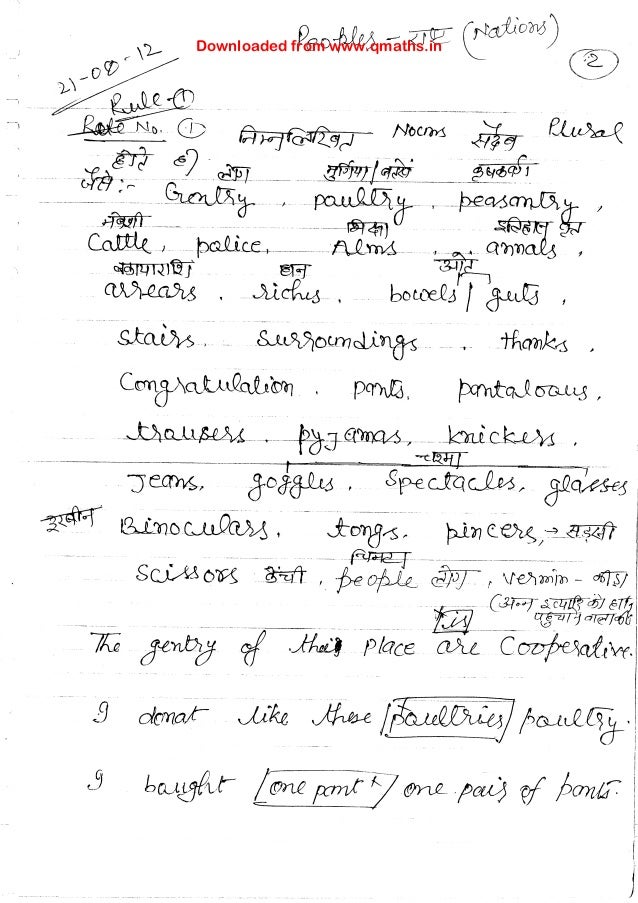 Peoples - राष्ट्र (Nations)
Downloaded from www.qmaths.in
2
21-08-12
Rule-①
Rule No. ① निम्नलिखित Nouns सदैव Plural
होते है।
जैसे :- लोग मुर्गियां/बत्तखें कृषकवर्ग
Gentry, paultry, peasantry,
मवेशी भिक्षा इतिहास वृत
Cattle, police, Alms, annals,
बकायाराशि धन आंते
arrears, riches, bowels/guts,
Stairs, Surroundings, thanks,
Congratulation, pants, pantaloous,
trausers, pyjamas, knickers,
चश्मा
Jeans, goggles, Spectacles, glasses
दूरबीन Binoculars, tongs, pincers, → सड़सी
चिमटा
Scissors कैंची, people लोग, vermin - कीड़ा
(अन्न इत्यादि को हानि
पहुचाने वाला कीट
is
The gentry of this place are Cooperative.
I donat like these / paultries / paultry.
I baught / one pant × / one pair of pants.